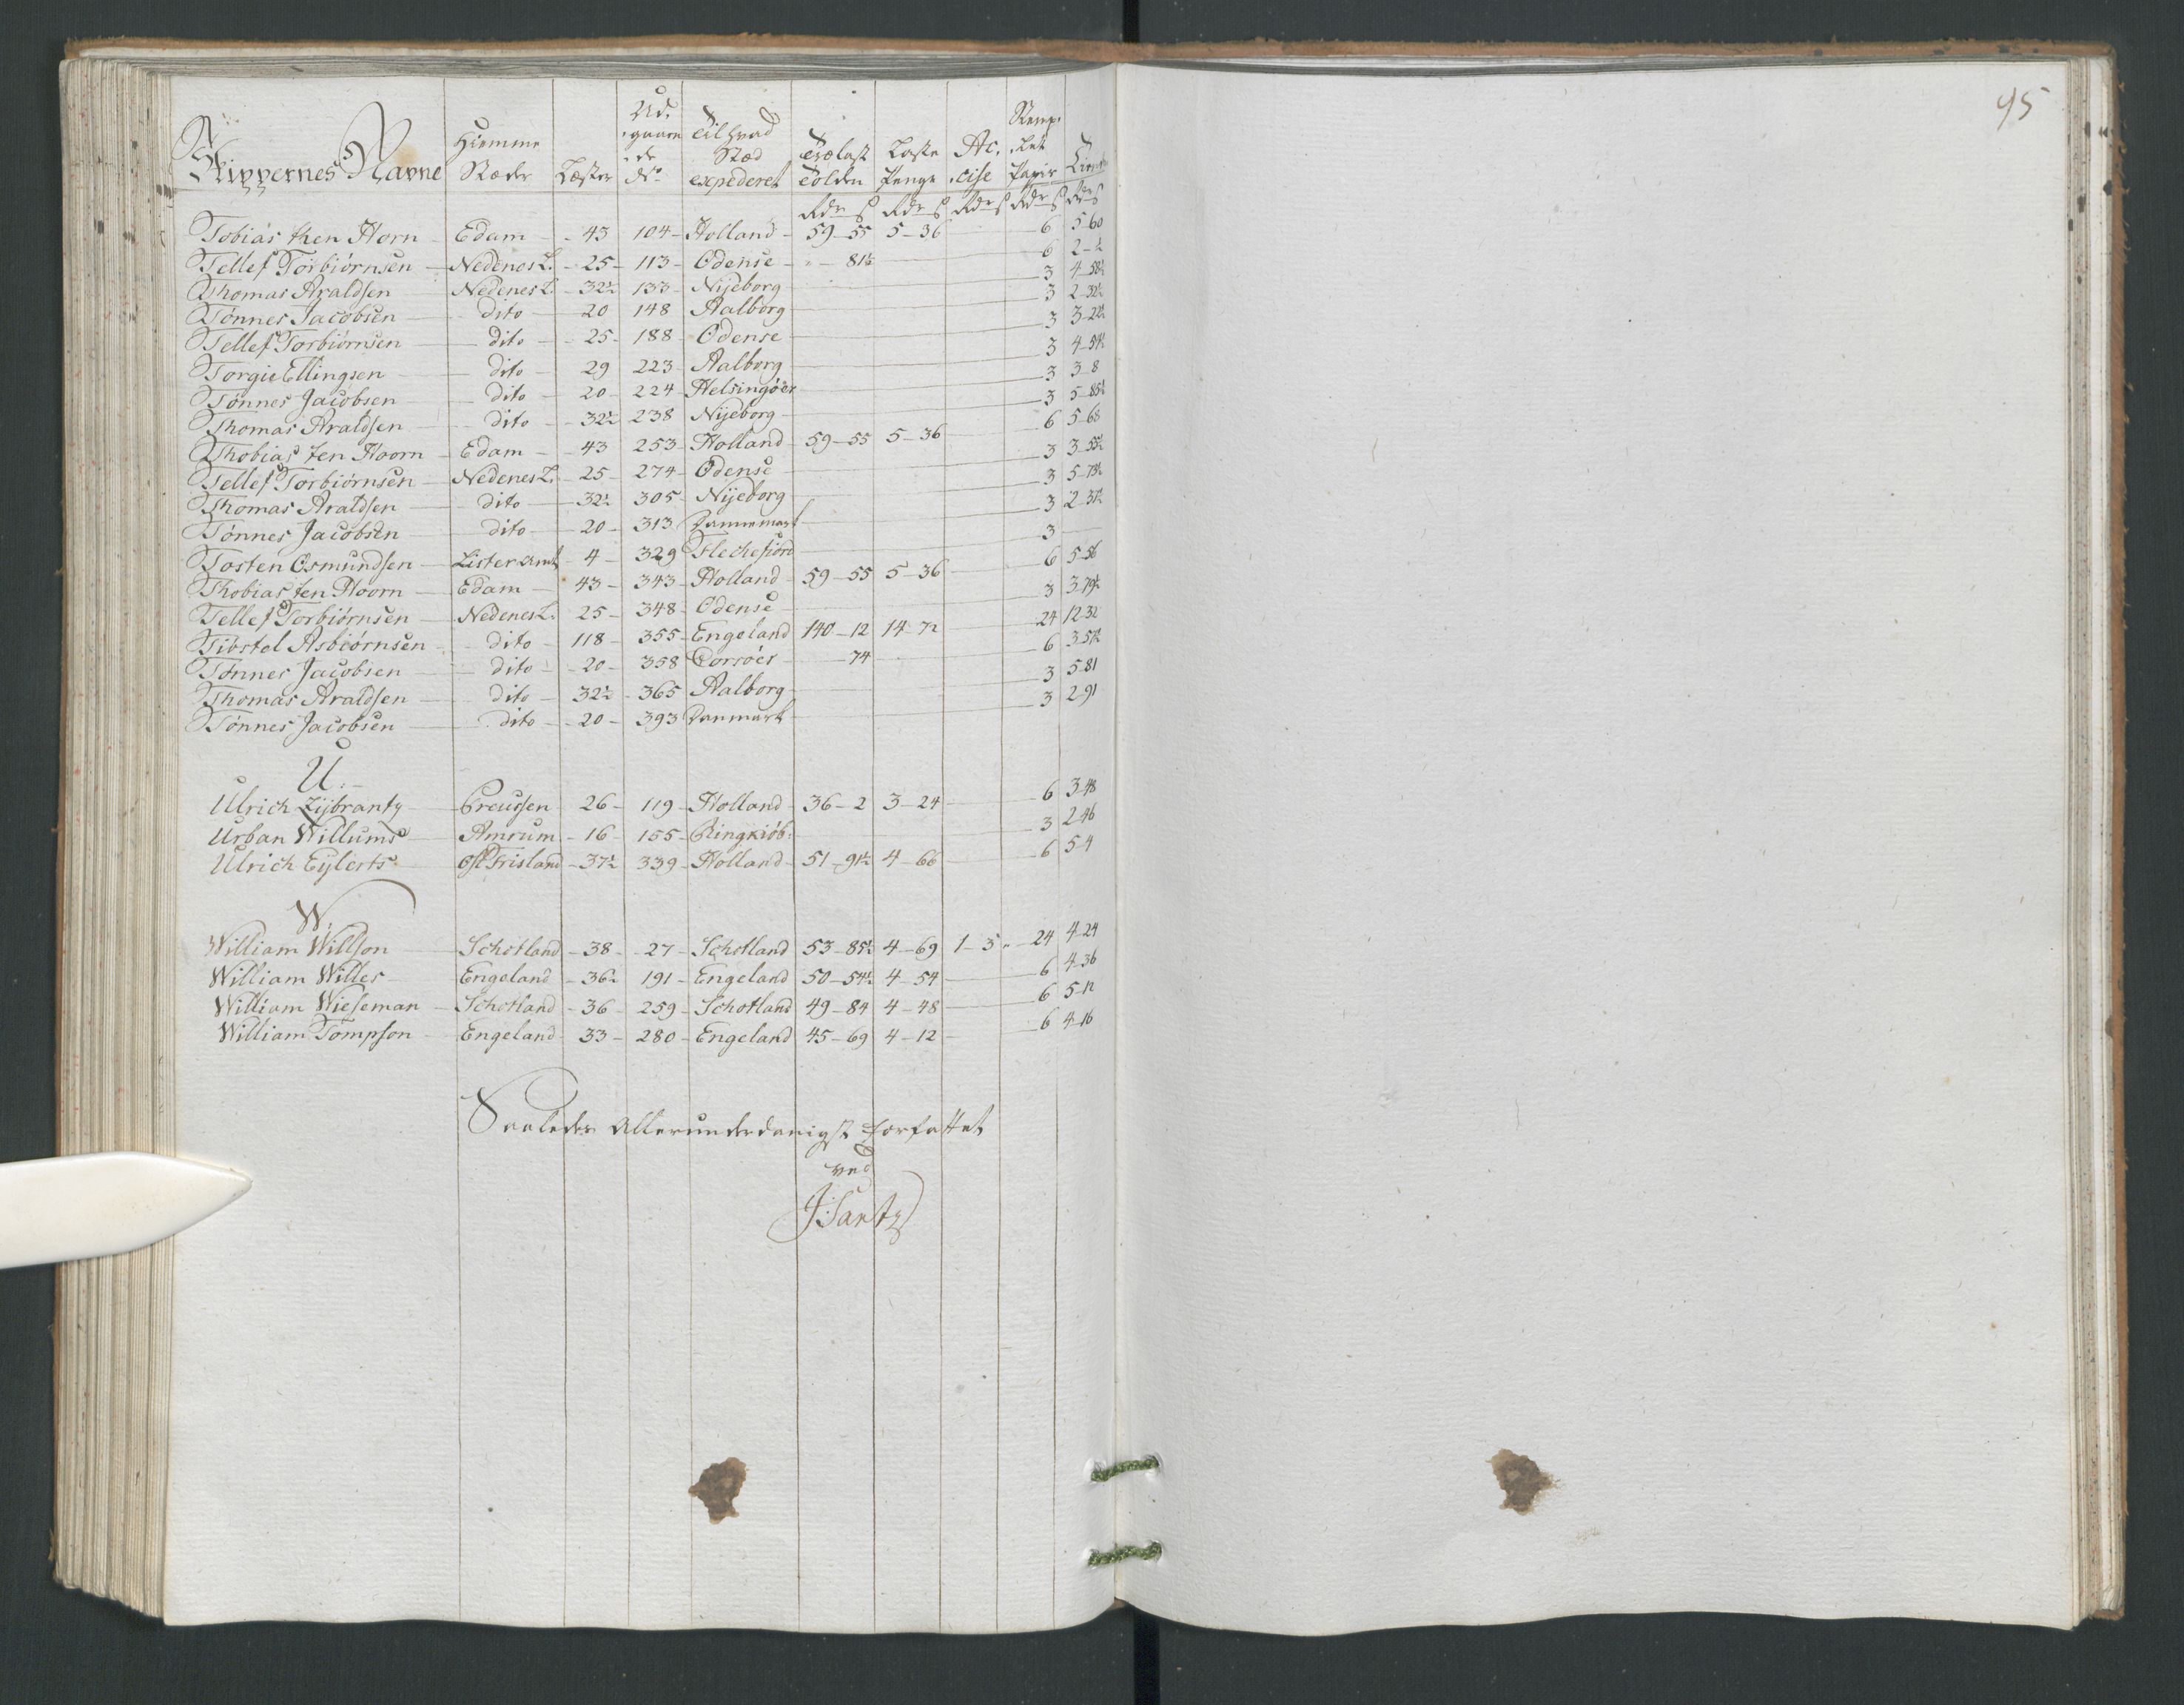 95
Skippernes Navne Hiemme Stæder Læster Ud gaaen de No Til hvad Stæd expederet Trælast Tolden Læste Penge Ac cise Stemp let Papir
Rdr ß Rdr ß Rdr ß Rdr ß Rdr ß
Tobias then Horn Edam 43 104 Holland 59-55 5-36 6 5 60
Tellef Torbiørnsen Nedenes L. 25 113 Odense 81½ 6 2-½
Thomas Araldsen Nedenes L. 32½ 133 Nijeborg 3 4-58½
Tønnes Jacobsen dito 20 148 Aalborg 3 2-32½
Tellef Torbiørnsen dito 25 188 Odense 3 3-22½
Torgie Ellingsen dito 29 223 Aalborg 3 4-54½
Tønnes Jacobsen dito 20 224 Helsingøer 3 3-8
Thomas Araldsen dito 32½ 238 Nijeborg 3 5-85½
Thobias ten Hoorn Edam 43 253 Holland 59-55 5-36 6 5-68
Tellef Torbiørnsen Nedenes L. 25 274 Odense 3 3-55½
Thomas Araldsen dito 32½ 305 Nijeborg 3 5-73½
Tønnes Jacobsen dito 20 313 Dannemark 3 2-37½
Tosten Osmundsen Lister amt 4 329 Flechefiord 3
Thobias ten Hoorn Edam 43 343 Holland 59-55 5-36 6 5-56
Tellef Torbiørnsen Nedenes L. 25 348 Odense 3 3-79½
Tibstol Asbiørnsen dito 118 355 Engeland 140-12 14-72 24 12-32
Tønnes Jacobsen dito 20 358 Corsöer 74 6 3-57½
Thomas Araldsen dito 32½ 365 Aalborg 3 5-81
Tønnes Jacobsen dito 20 393 Danmark 3 2-91
U.
Ulrich Zijbrantz Preussen 26 119 Holland 36-2 3-24 6 3-48
Urban Willums Amrum 16 155 Ringkiöb: 3 2-46
Ulrich Eijlerts Ost Frisland 37½ 339 Holland 51-91½ 4-66 6 5-4
W.
William Willson Schotland 38 27 Schotland 53-85½ 4-69 1-3 24 4-24
William Willes Engeland 36½ 191 Engeland 50-54½ 4-54 6 4-36
William Wieseman Schotland 36 259 Schotland 49-84 4-48 6 5-12
William Tompson Engeland 33 280 Engeland 45-69 4-12 6 4-16
Saaledes Allerunderdanigst forfattet
ved